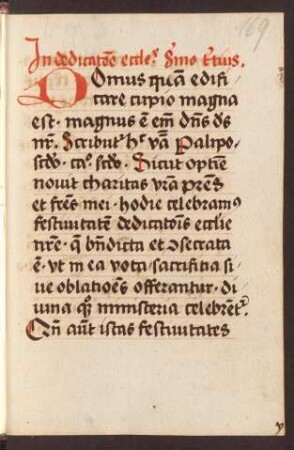 169
In dedicatōe eccle˜ Sermo t̄tius.
Domus quā edifi
care cupio magna
est · magnus ē em̄ dn̄s ds̄
nr̄. Scribut˜ h˜ vā Palipo.
scdo · ca˚ scdo · Sicut optīe
novit charitas vr̄a prēs
et frēs mei · hodie celebramꝰ
festivitatē dedicatōis eccl̄ie
nr̄e · q̄ bn̄dicta et ɔsecrata
ē · vt in ea vota · sacrificia si
ve oblatiōes offerantur · di
vina qꝫ ministeria celebrēt˜.
Qn̄ aūt istas festivitates
y